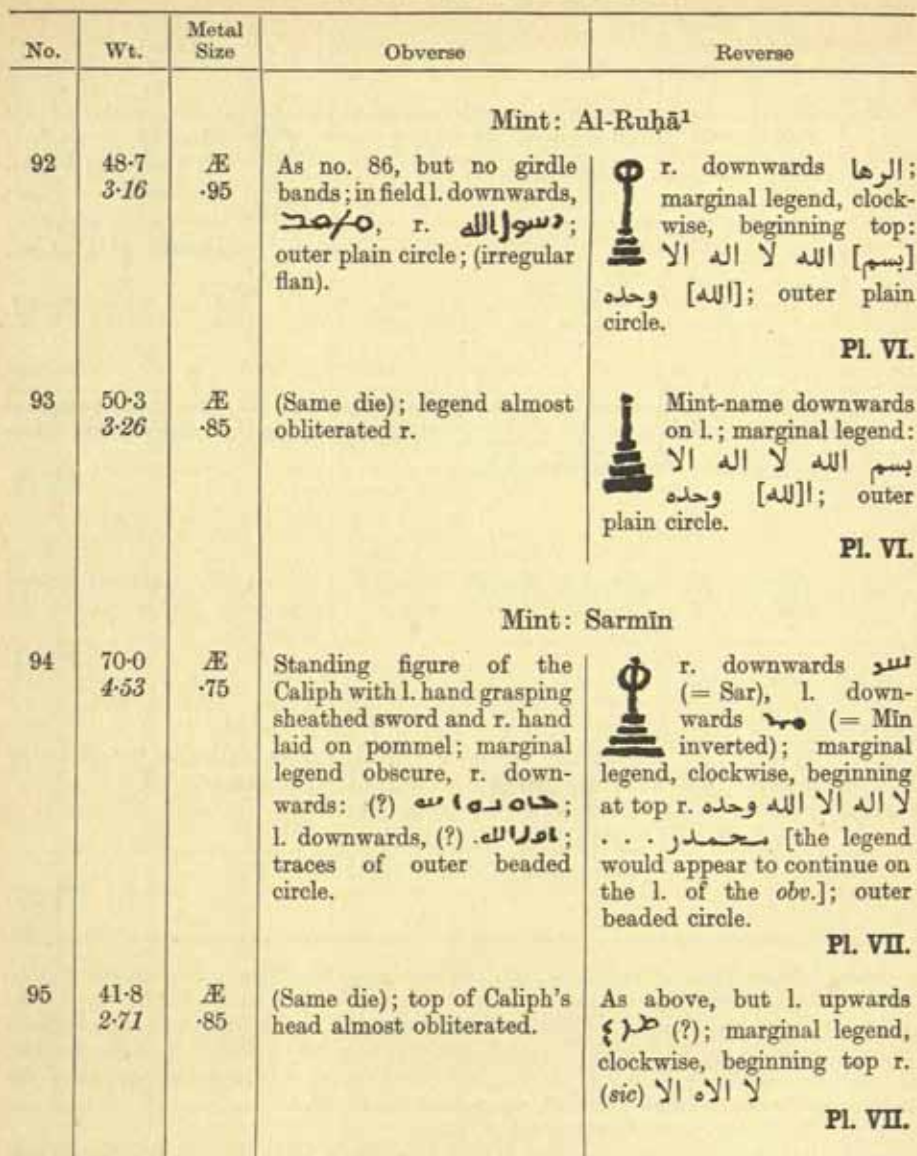 No. Wt. Metal Size Obverse Reverse
Mint: Al-Ruḥā¹
92 48·7 3·16 Æ ·95
As no. 86, but no girdle
bands; in field l. downwards,
, r. رسول الله;
outer plain circle; (irregular
flan).
r. downwards الرها;
marginal legend, clock-
wise, beginning top:
[بسم] الله لا اله الا
[الله] وحده; outer plain
circle.
Pl. VI.
93 50·3 3·26 Æ ·85
(Same die); legend almost
obliterated r.
Mint-name downwards
on l.; marginal legend:
بسم الله لا اله الا
ا[لله] وحده; outer
plain circle.
Pl. VI.
Mint: Sarmīn
94 70·0 4·53 Æ ·75
Standing figure of the
Caliph with l. hand grasping
sheathed sword and r. hand
laid on pommel; marginal
legend obscure, r. down-
wards: (?) ;
l. downwards, (?) ;
traces of outer beaded
circle.
r. downwards
(= Sar), l. down-
wards (= Mīn
inverted); marginal
legend, clockwise, beginning
at top r. لا اله الا الله وحده
محمدر . . . [the legend
would appear to continue on
the l. of the obv.]; outer
beaded circle.
Pl. VII.
95 41·8 2·71 Æ ·85
(Same die); top of Caliph's
head almost obliterated.
As above, but l. upwards
(?); marginal legend,
clockwise, beginning top r.
(sic) لا الاه الا
Pl. VII.